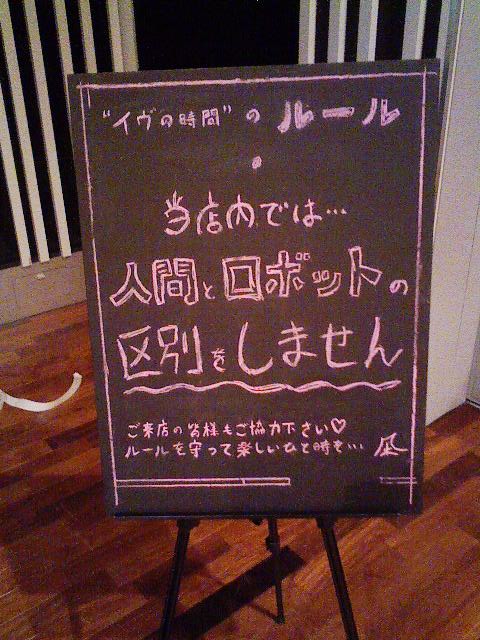 “イヴの時間”の ルール
当店内では…
人間とロボットの
区別をしません
ご来店の皆様もご協力下さい♡
ルールを守って楽しいひと時を… 凪